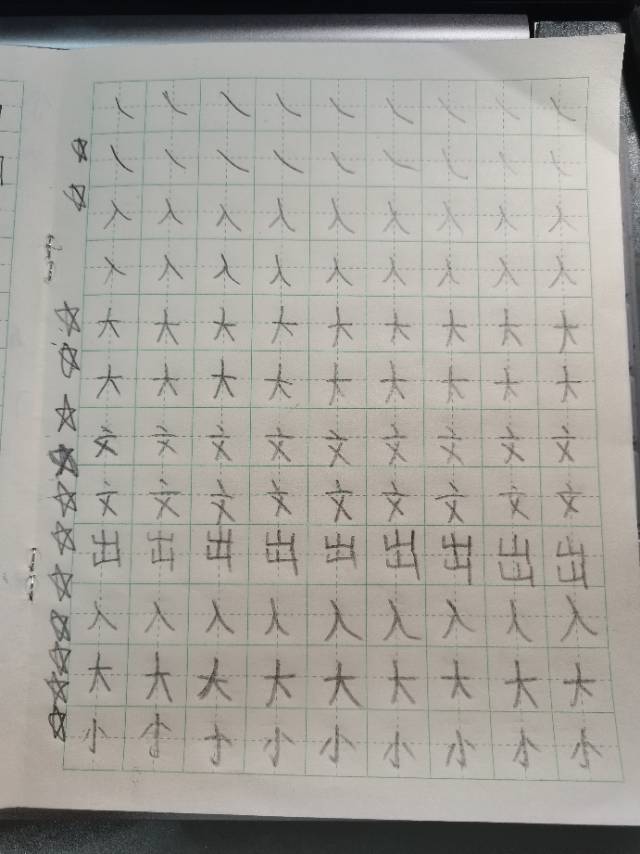 人 人 人 人 人 人 人 人 人
人 人 人 人 人 人 人 人 人
大 大 大 大 大 大 大 大 大
大 大 大 大 大 大 大 大 大
文 文 文 文 文 文 文 文 文
文 文 文 文 文 文 文 文 文
出 出 出 出 出 出 出 出 出
人 人 人 人 人 人 人 人 人
大 大 大 大 大 大 大 大 大
小 小 小 小 小 小 小 小 小